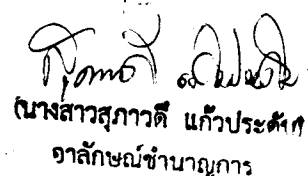 (นางสาวสุภาวดี แก้วประดับ)
อาลักษณ์ชำนาญการ